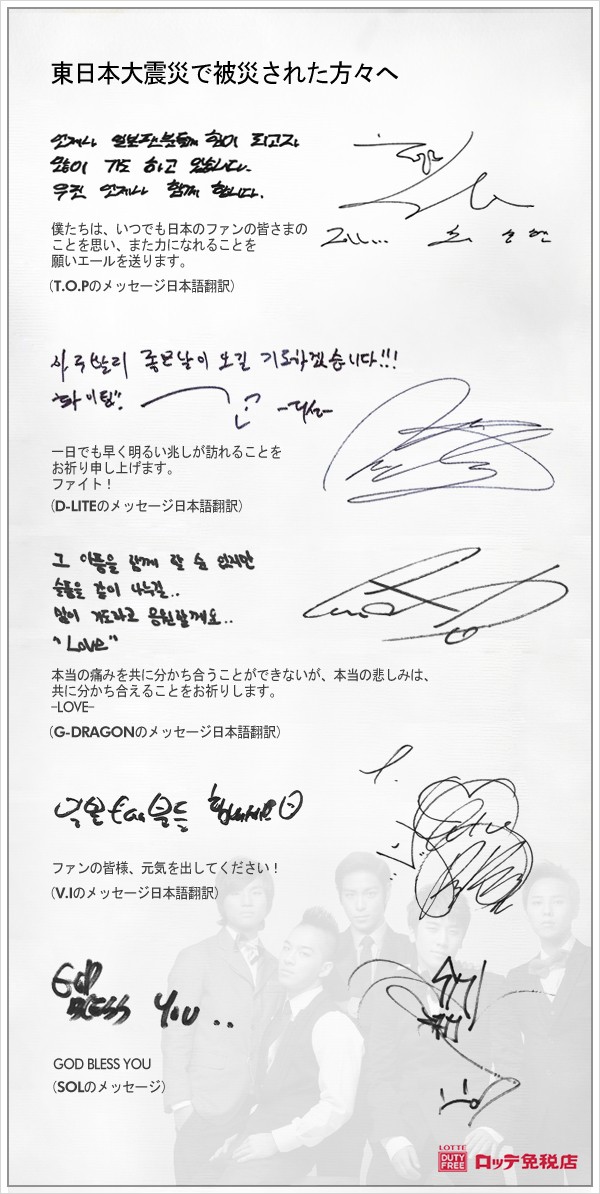 東日本大震災で被災された方々へ
언제나 일본팬분들께 힘이 되고자
많이 기도 하고 있습니다.
우린 언제나 함께 합니다.
僕たちは、いつでも日本のファンの皆さまの
ことを思い、また力になれることを
願いエールを送ります。
(T.O.Pのメッセージ日本語翻訳)
하루빨리 좋은날이 오길 기도하겠습니다!!!
"화이팅".
-대성-
一日でも早く明るい兆しが訪れることを
お祈り申し上げます。
ファイト!
(D-LITEのメッセージ日本語翻訳)
그 아픔을 함께 할 순 없지만
슬픔을 같이 나누길..
많이 기도하고 응원할께요..
"Love"
本当の痛みを共に分かち合うことができないが、本当の悲しみは、
共に分かち合えることをお祈りします。
-LOVE-
(G-DRAGONのメッセージ日本語翻訳)
일본 fan분들 힘내세요
ファンの皆様、元気を出してください!
(V.Iのメッセージ日本語翻訳)
GOD
BLESS YOU..
GOD BLESS YOU
(SOLのメッセージ)
LOTTE
DUTY
FREE
ロッテ免税店